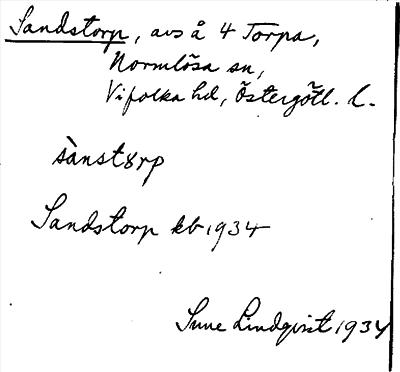 Sandstorp, avs å 4 Torpa,
Normlösa sn,
Vifolka hd, Östergötl. l.
sànstɤrp
Sandstorp kb 1934
Sune Lindqvist 1934